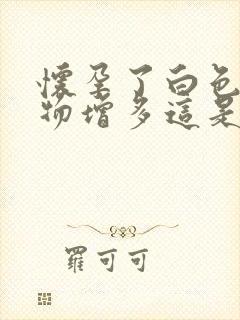 懷孕了白色
物增多這是
羅可可